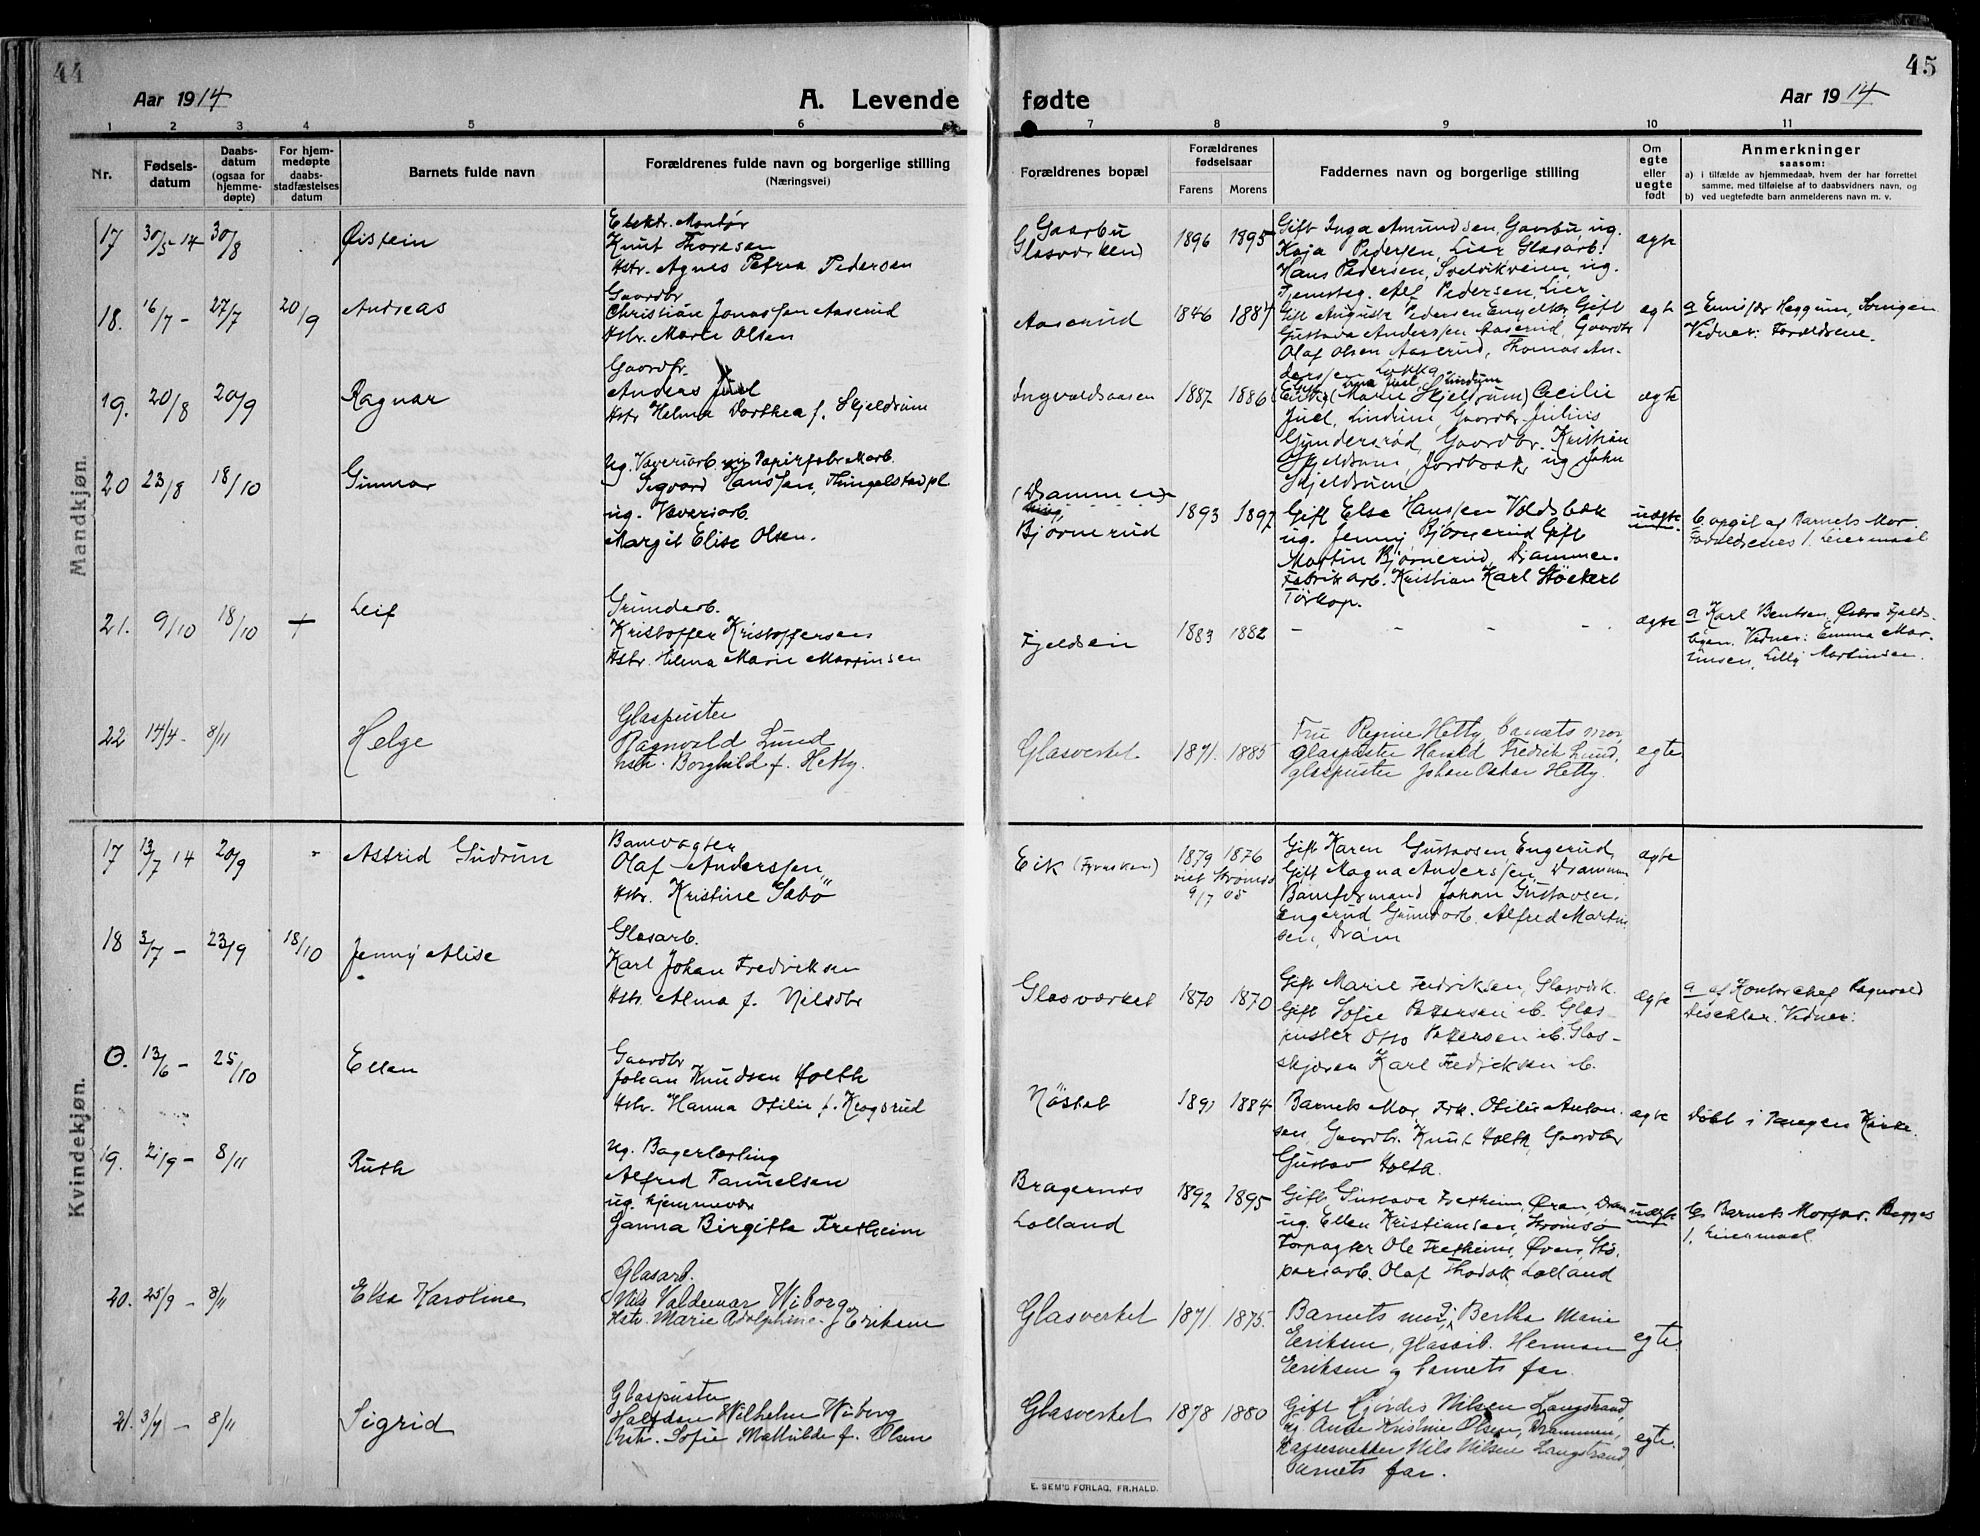 44
Aar 1914
A. Levende
1 2 3 4 5 6
Nr.
Fødsels-
datum
Daabs-
datum
(ogsaa for
hjemme-
døpte)
For hjem-
medøpte
daabs-
stadfæstelses
datum
Barnets fulde navn
Forældrenes fulde navn og borgerlige stilling
(Næringsvei)
Mandkjøn.
17 30/5-14 30/8 Øistein
Elektr. Montør
Knut Thoresen
Hstr. Agnes Petrea Pedersen
18. 16/7 - 27/7 20/9 Andreas
Gaardbr
Christian Jonassen Aaserud
Hstr. Marie Olsen
19. 20/8 20/9 Ragnar
Gaardfr.
Andeas Juel
Hstr Helma Dorthea f. Skjeldrum
20 23/8 18/10 Gunnar
Ug. Væveriarb. Papirfabr
Sigvard Hanssen, Thingelstadpl
ug. Væveriarb.
Margit Elise Olsen.
21. 9/10 18/10 + Leif
Grundarb.
Kristoffer Kristoffersen
Hstr. Helma Marie Martinsen
22 14/4 - 8/11 Helge
Glaspuster
Ragnvald Lund
hstr. Borghild f. Hetty.
Kvindekjøn.
17 13/7 14 20/9 Astrid Gudrun
Banevogter
Olaf Anderssen
Hstr. Kristine Sabø
18 3/7 - 23/9 18/10 Jenny Alise
Glasarb.
Karl Johan Fredriksen
Hstr. Alma f. Nilsdbr
0. 13/6 - 25/10 Ellen
Gaardbr
Johan Knudsen Holth
Hstr. Hanna Otilie f. Krogsrud
19. 21/9 - 8/11 Ruth
Ug. Bagerlærling
Alfred Fanuelsen
ug. hjemmevær
Janna Birgitta Fretheim
20. 25/9 - 8/11 Elsa Karoline
Glasarb.
Nils Valdemar Wiborg
Hstr. Marie Adolphine f Eriksen
21. 3/7 - 8/11 Sigrid
Glaspuster
Halfdan Wilhelm Wiborg
hstr. Sofie Mathilde f. Olsen
45
fødte
Aar 1914
7 8 9 10 11
Forældrenes bopæl
Forældrenes
fødselsaar
Farens Morens
Faddernes navn og borgerlige stilling
Om
egte
eller
uegte
født
Anmerkninger
saasom:
a) i tilfælde av hjemmedaab, hvem der har forrettet
samme, med tilføielse af to daabsvidners navn, og
b) ved uegtefødte barn anmelderens navn m. v.
Gaarbu
Glasværken) 1896 1895
Gift Inga Amundsen, Gaarbu, ug.
Kaja Pedersen, Lier Glasarb.
Hans Pedersen, Svelvikveien, ug.
Tjenesteg. Alf Pedersen, Lier
ægte
Aaserud 1846 1887
Gift Auguste Pedersen Gift
Gustava Anderssen Aaserud, Gaardbr
Olaf Olsen Aaserud, Thomas An-
derssen Løkka
egte
a Heggum,
Vidner: Forældrene.
Ingvaldsaasen 1887 1886
(Marie Skjeldrum) Cecilie
Juel, Gaardbr. Julius
Gundersrød, Gaardbr. Kristian
Skjeldrum, Jordbæk, ug John
Skjeldrum
ægte
(Drammen)
Bjørnerud 1893 1897
Gift Else Hanssen Voldsbæk
ug. Jenny Bjørnerud Gift
Martin Bjørnerud, Drammen.
Fabrikarb. Kristian Karl
Tørkop.
uægte
b opgit af Barnets Mor.
Forældrenes 1. Leiermaal
Fjeldsein 1883 1882 - - - - ægte
a Karl Bentsen, Østre Fjelds-
byen. Vidner: Emma Mar-
tinsen, Lilly Martinsen.
Glasverket 1871. 1885
Fru Regine Hetty, barnets mor,
glaspuster Harald Fredrik Lund,
glaspuster Johan Oskar Hetty.
egte
Eik 1879 1876
viet Strømsø
9/7 05
Gift Karen Gustavsen, Engerud,
Gift Magna Anderssen, Drammen
Baneformand Johan Gustavsen,
Engerud Grundarb. Alfred Martin-
sen, Dram
ægte
Glasværket 1870 1870
Gift Marie Fredriksen, Glasværk.
Gift Sofie Pettersen ib. Glas-
puster Otto Pettersen ib. Glas-
skjærer Karl Fredriksen ib.
ægte
a af Kontorchef Ragnvald
Vidner:
Nøstet 1891 1884
Barnets Mor, Frk. Otilie Anton-
sen, Gaardbr. Knut Holth, Gaardbr
Gustav Holth.
ægte
Døbt i Tangen Kirke.
Bragernes
Lolland 1892 1895
Gift Gustava Fretheim, Øren, Dram
ug. Ellen Kristiansen, Strømsø
Ole Fretheim, Øren,
Olaf Lolland
uægte
b Barnets Morfar. Begges
1. Leiermaal.
Glasverket 1871. 1875.
Barnets mor, Bertha Marie
Eriksen, glasarb. Herman
Eriksen og barnets far.
egte.
Glasverket 1878 1880
Gift Hjørdis Nilsen Langstrand,
ug. Anne Kristine Olsen, Drammen,
Nils Nilsen Langstrand,
barnets far.
egte.
E. SEM'S FORLAG, FR.HALD.